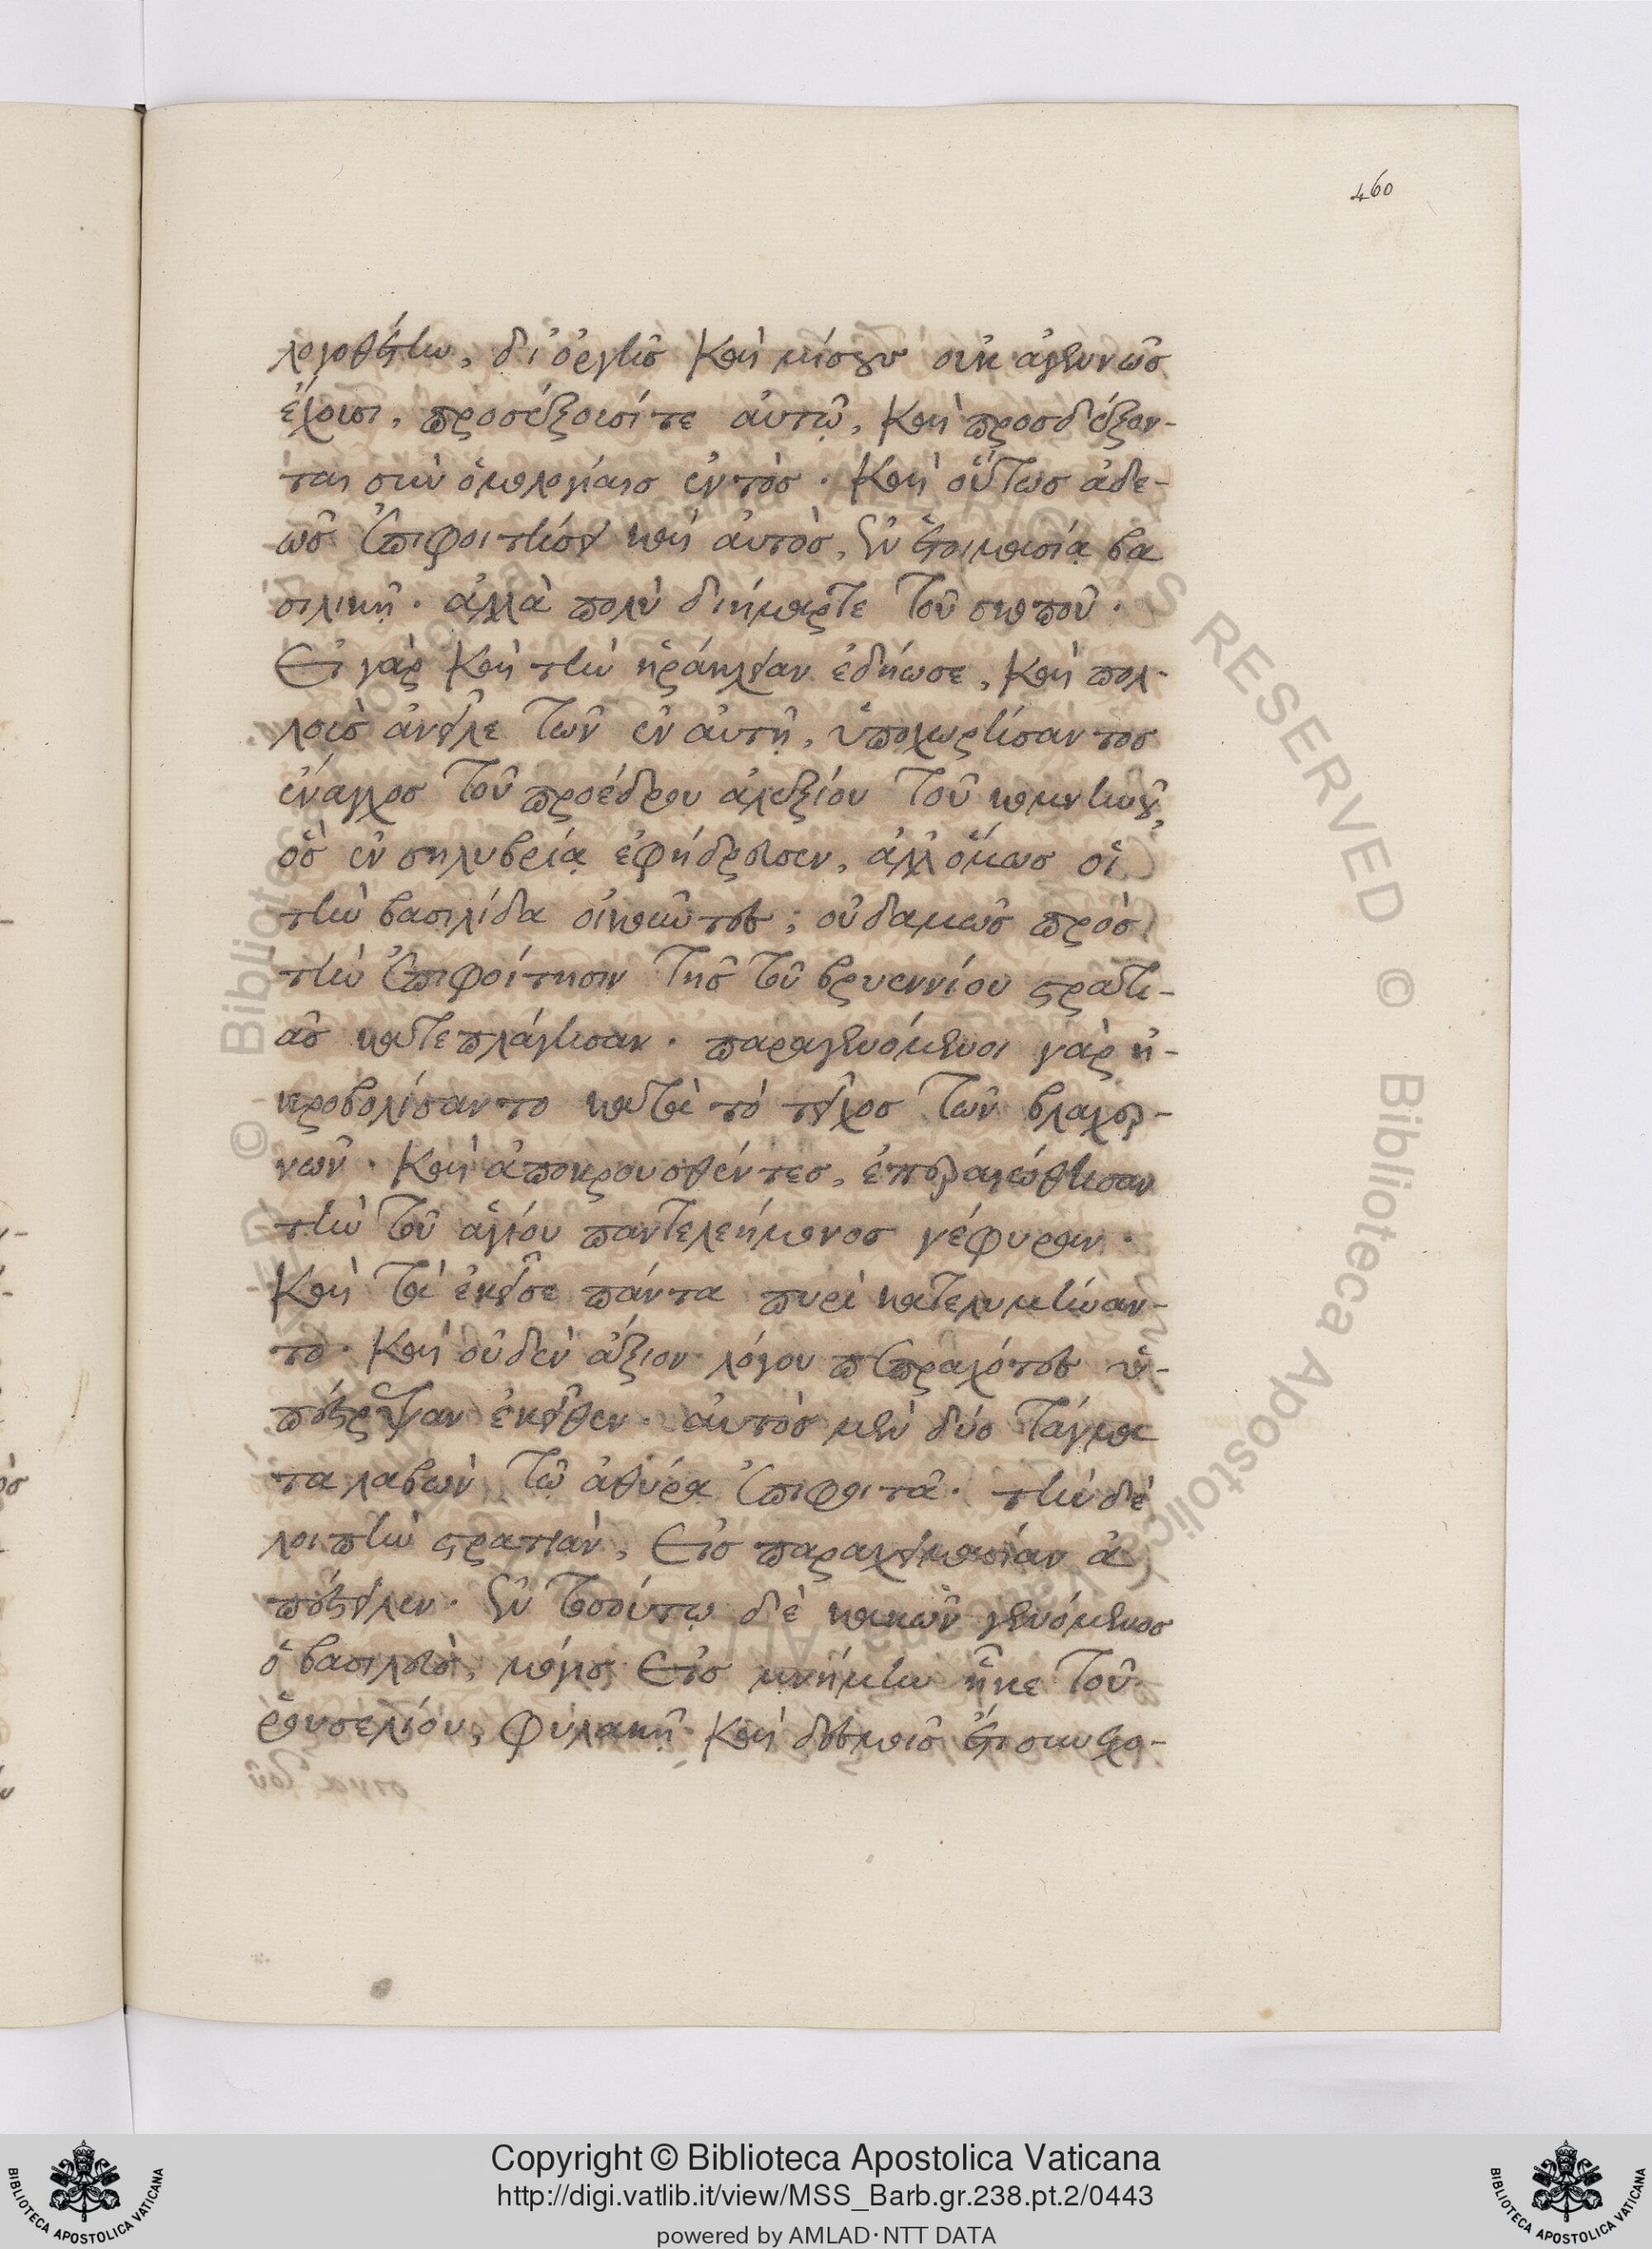 460
λογοθέτην, δι' ὀργῆς καὶ μίσους οὐκ ἀγεννῶς
ἔχουσι, προσέξουσί τε αὐτῷ, καὶ προσδέξον-
ται σὺν ὁμολογίαις ἐντὸς. καὶ οὕτως ἀδε-
ῶς ἐπιφοιτήσει καὶ αὐτὸς, ἐν ἑτοιμασίᾳ βα
σιλικῇ. ἀλλὰ πολὺ διήμαρτε τοῦ σκοποῦ.
Εἰ γὰρ καὶ τὴν ἡράκλειαν ἐδήωσε, καὶ πολ-
λοὺς ἀνεῖλε τῶν ἐν αὐτῇ, ὑποχωρήσαντος
ἔναγχος τοῦ προέδρου ἀλεξίου τοῦ κομνηνοῦ,
ὃς ἐν σηλυβρίᾳ ἐφήδρευσεν, ἀλλ' ὅμως οἱ
τὴν βασιλίδα οἰκοῦντες; οὐδαμῶς πρὸς
τὴν ἐπιφοίτησιν τῆς τοῦ βρυεννίου στρατι-
ᾶς κατεπλάγησαν. παραγενόμενοι γὰρ ἠ-
κροβολίσαντο κατὰ τὸ τεῖχος τῶν βλαχερ-
νῶν. καὶ ἀποκρουσθέντες, ἐπεραιώθησαν
τὴν τοῦ ἁγίου παντελεήμονος γέφυραν.
καὶ τὰ ἐκεῖσε πάντα πυρὶ κατελυμήναν-
το. καὶ οὐδὲν ἄξιον λόγου πεπραχότες ὑ-
πέστρεψαν ἐκεῖθεν. αὐτὸς μὲν δύο τάγμα
τα λαβὼν τῷ ἀθύρᾳ ἐπιφοιτᾶ. τὴν δὲ
λοιπὴν στρατιὰν, εἰς παραχειμασίαν ἀ
πέστειλεν. ἐν τοσούτῳ δὲ κακῶν γενόμενος
ὁ βασιλεὺς, μόγις εἰς μνήμην ἧκε τοῦ
ῥουσελίου, φυλακῇ καὶ δεσμοῖς ἔτι σκυθρω-